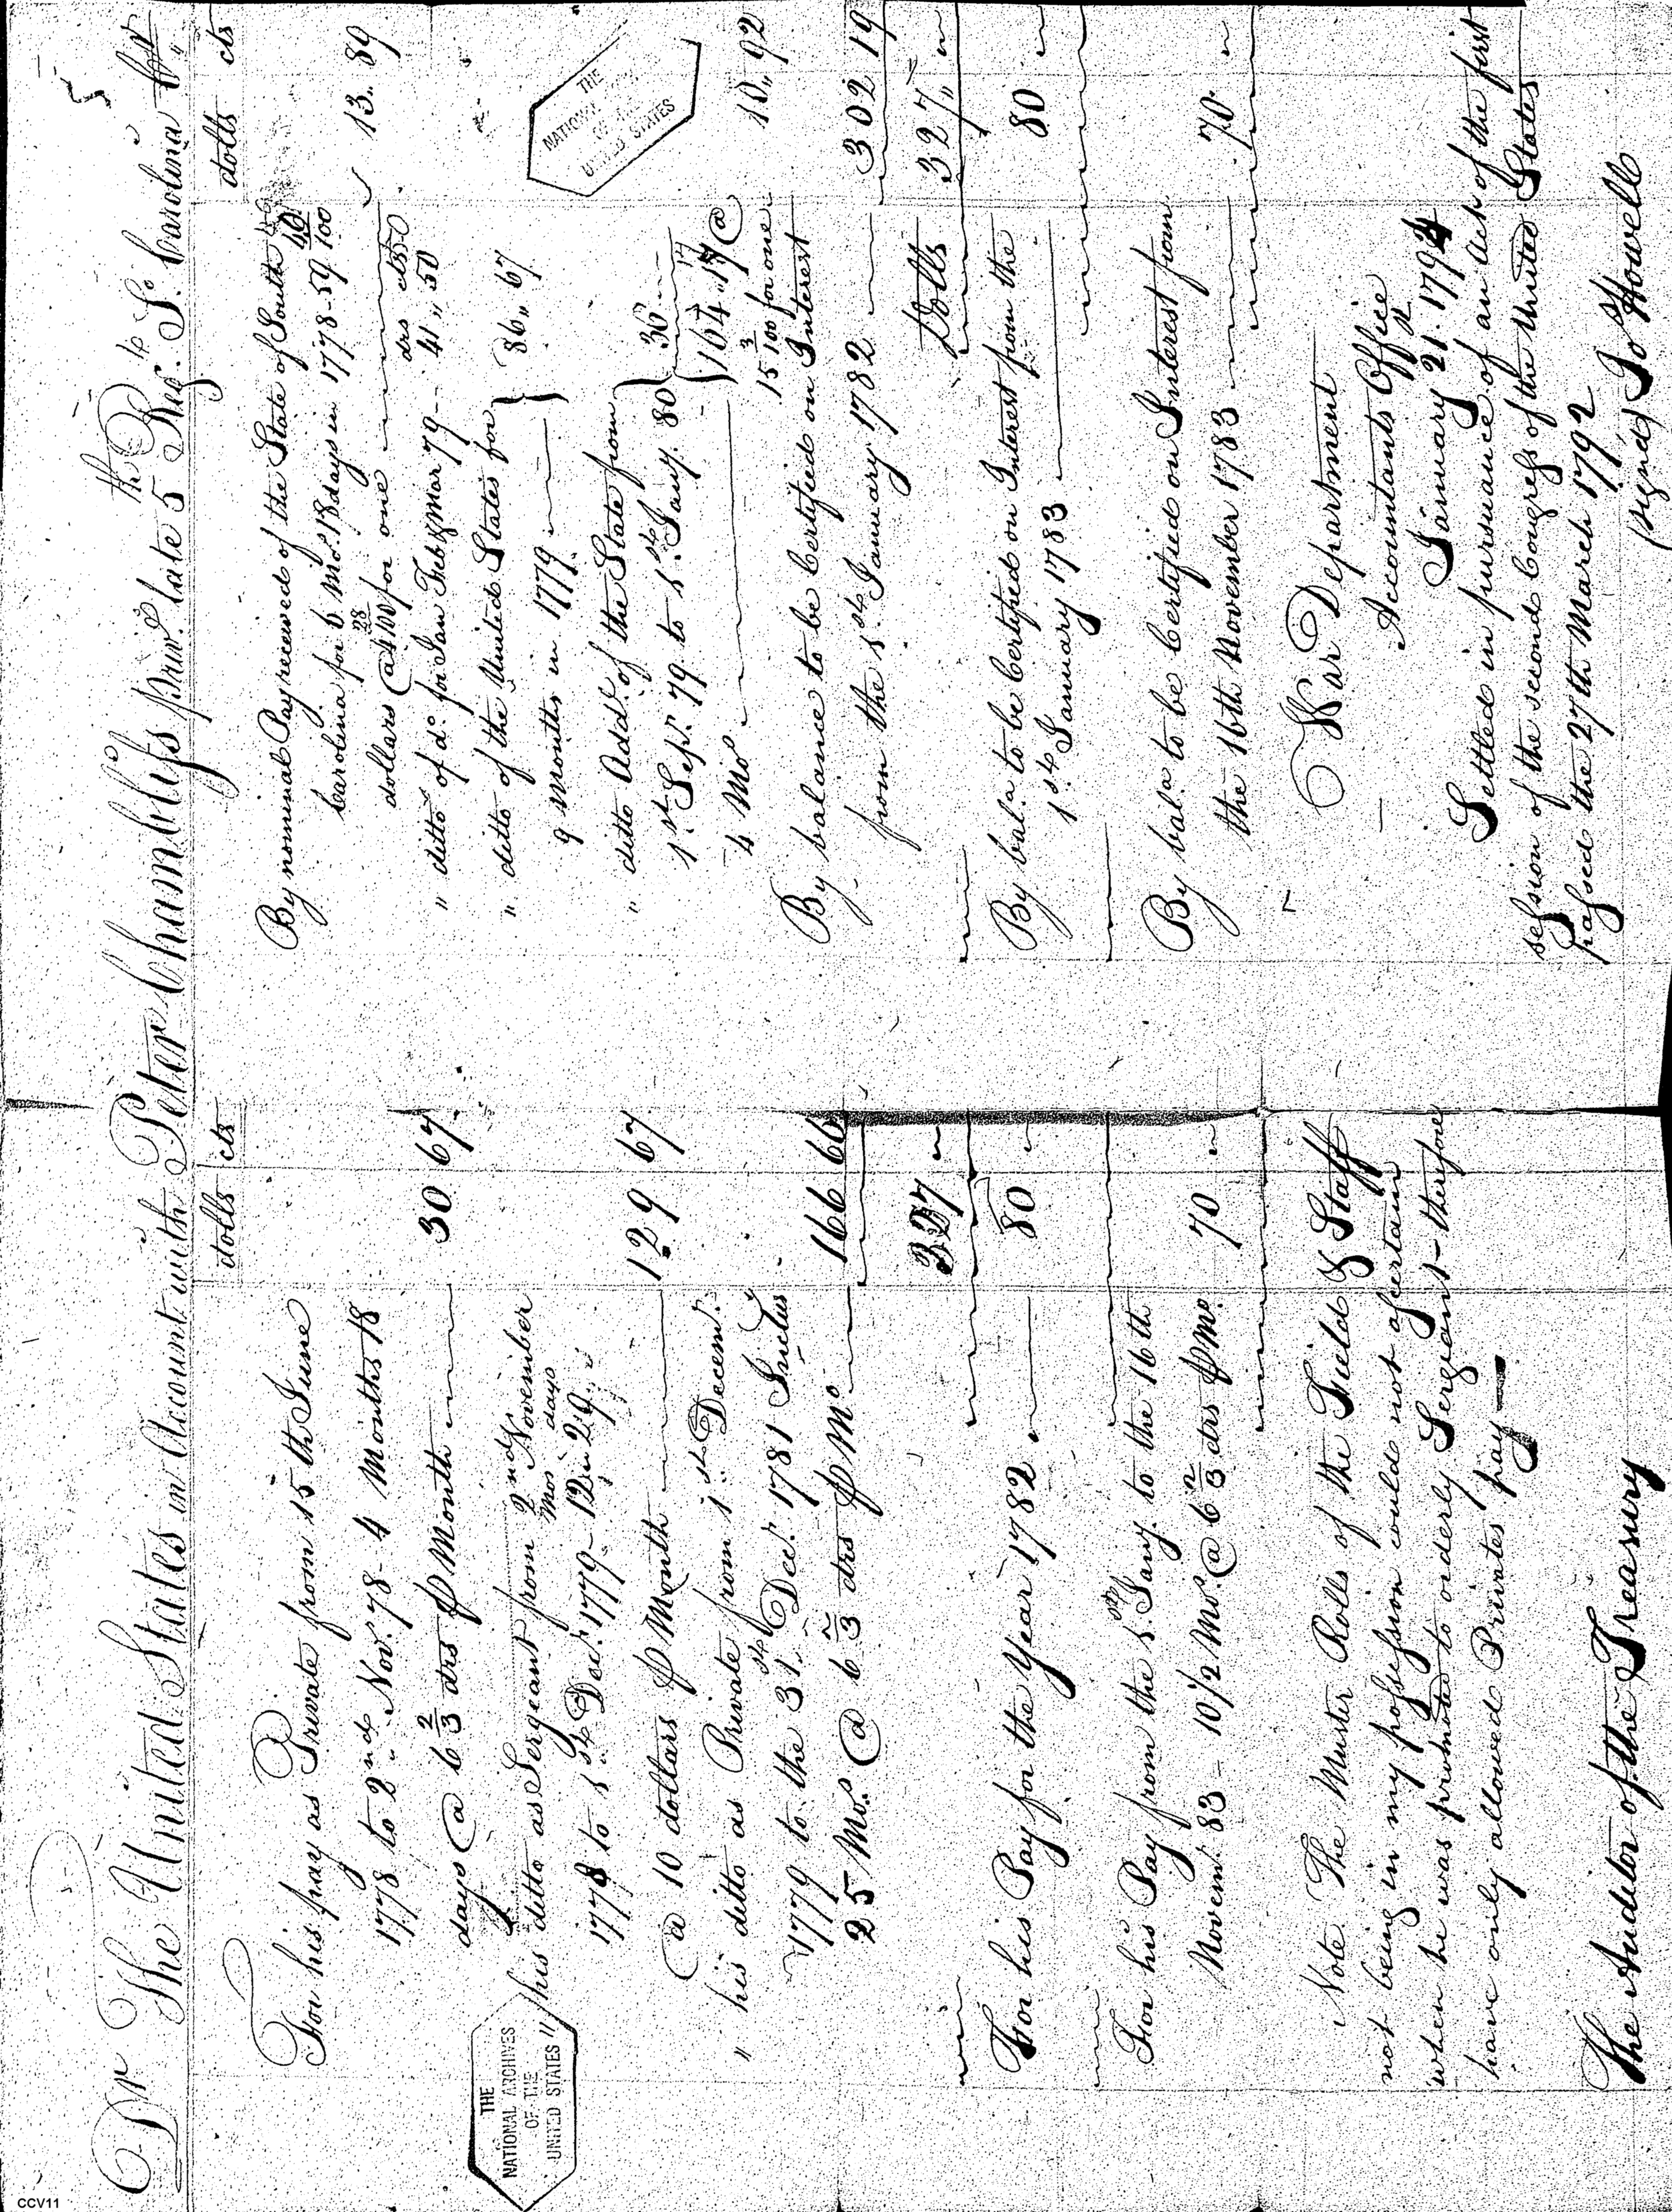 Dr The United States in Account with Peter Chamblys priv.e late 5th Reg.t So. Carolina
dolls cts
For his pay as Private from 15th June
1778 to 2nd Nov.r 78 - 4 Months 18
days @ 6 2/3 drs ⅌ Month 30 67
his ditto as Sergeant from 2nd November
mos days
1778 to 1st Dec.r 1779 - 12 " 29 "
@ 10 dollars ⅌ Month 129 67
" his ditto as Private from 1st Decem.r
1779 to the 31st Dec.r 1781 Inclus
25 Mo.s @ 6 2/3 drs ⅌ Mo. 166 66
327 "
For his Pay for the Year 1782 80 "
For his Pay from the 1st Jany. to the 16th
Novem.r 83 - 10 1/2 Mo.s @ 6 2/3 drs ⅌ Mo. 70 "
Note. The Muster Rolls of the Field & Staff
not being in my possession could not ascertain
when he was promoted to orderly Sergeant - therefore
have only allowed Privates pay
The Auditor of the Treasury
dolls cts
By nominal Pay received of the State of South
Carolina for 6 Mo.s 18 days in 1778 - 59 40/100
dollars @ 4 28/100 for one 13 " 89
drs cts
" ditto of do. for Jan Feb & Mar 79 - 41 " 50
" ditto of the United States for
9 Months in 1779 86 " 67
" ditto Add.l of the State from
1st Sep.r 79 to 1st Jany. 80 36
4 Mo.s 164 " 17 @
15 3/100 for one 10 " 92
By balance to be Certified on Interest
from the 1st January 1782 302 19
Dolls 327 "
By bal.a to be Certified on Interest from the
1st January 1783 80 "
By bal.a to be Certified on Interest from
the 16th November 1783 70 "
War Department
Accountants Office
January 21. 1794
Settled in pursuance of an Act of the first
session of the second Congress of the United States
passed the 27th March 1792
(signed) Jos. Howell
THE
NATIONAL ARCHIVES
OF THE
UNITED STATES
THE
NATIONAL
OF THE
UNITED STATES
CCV11